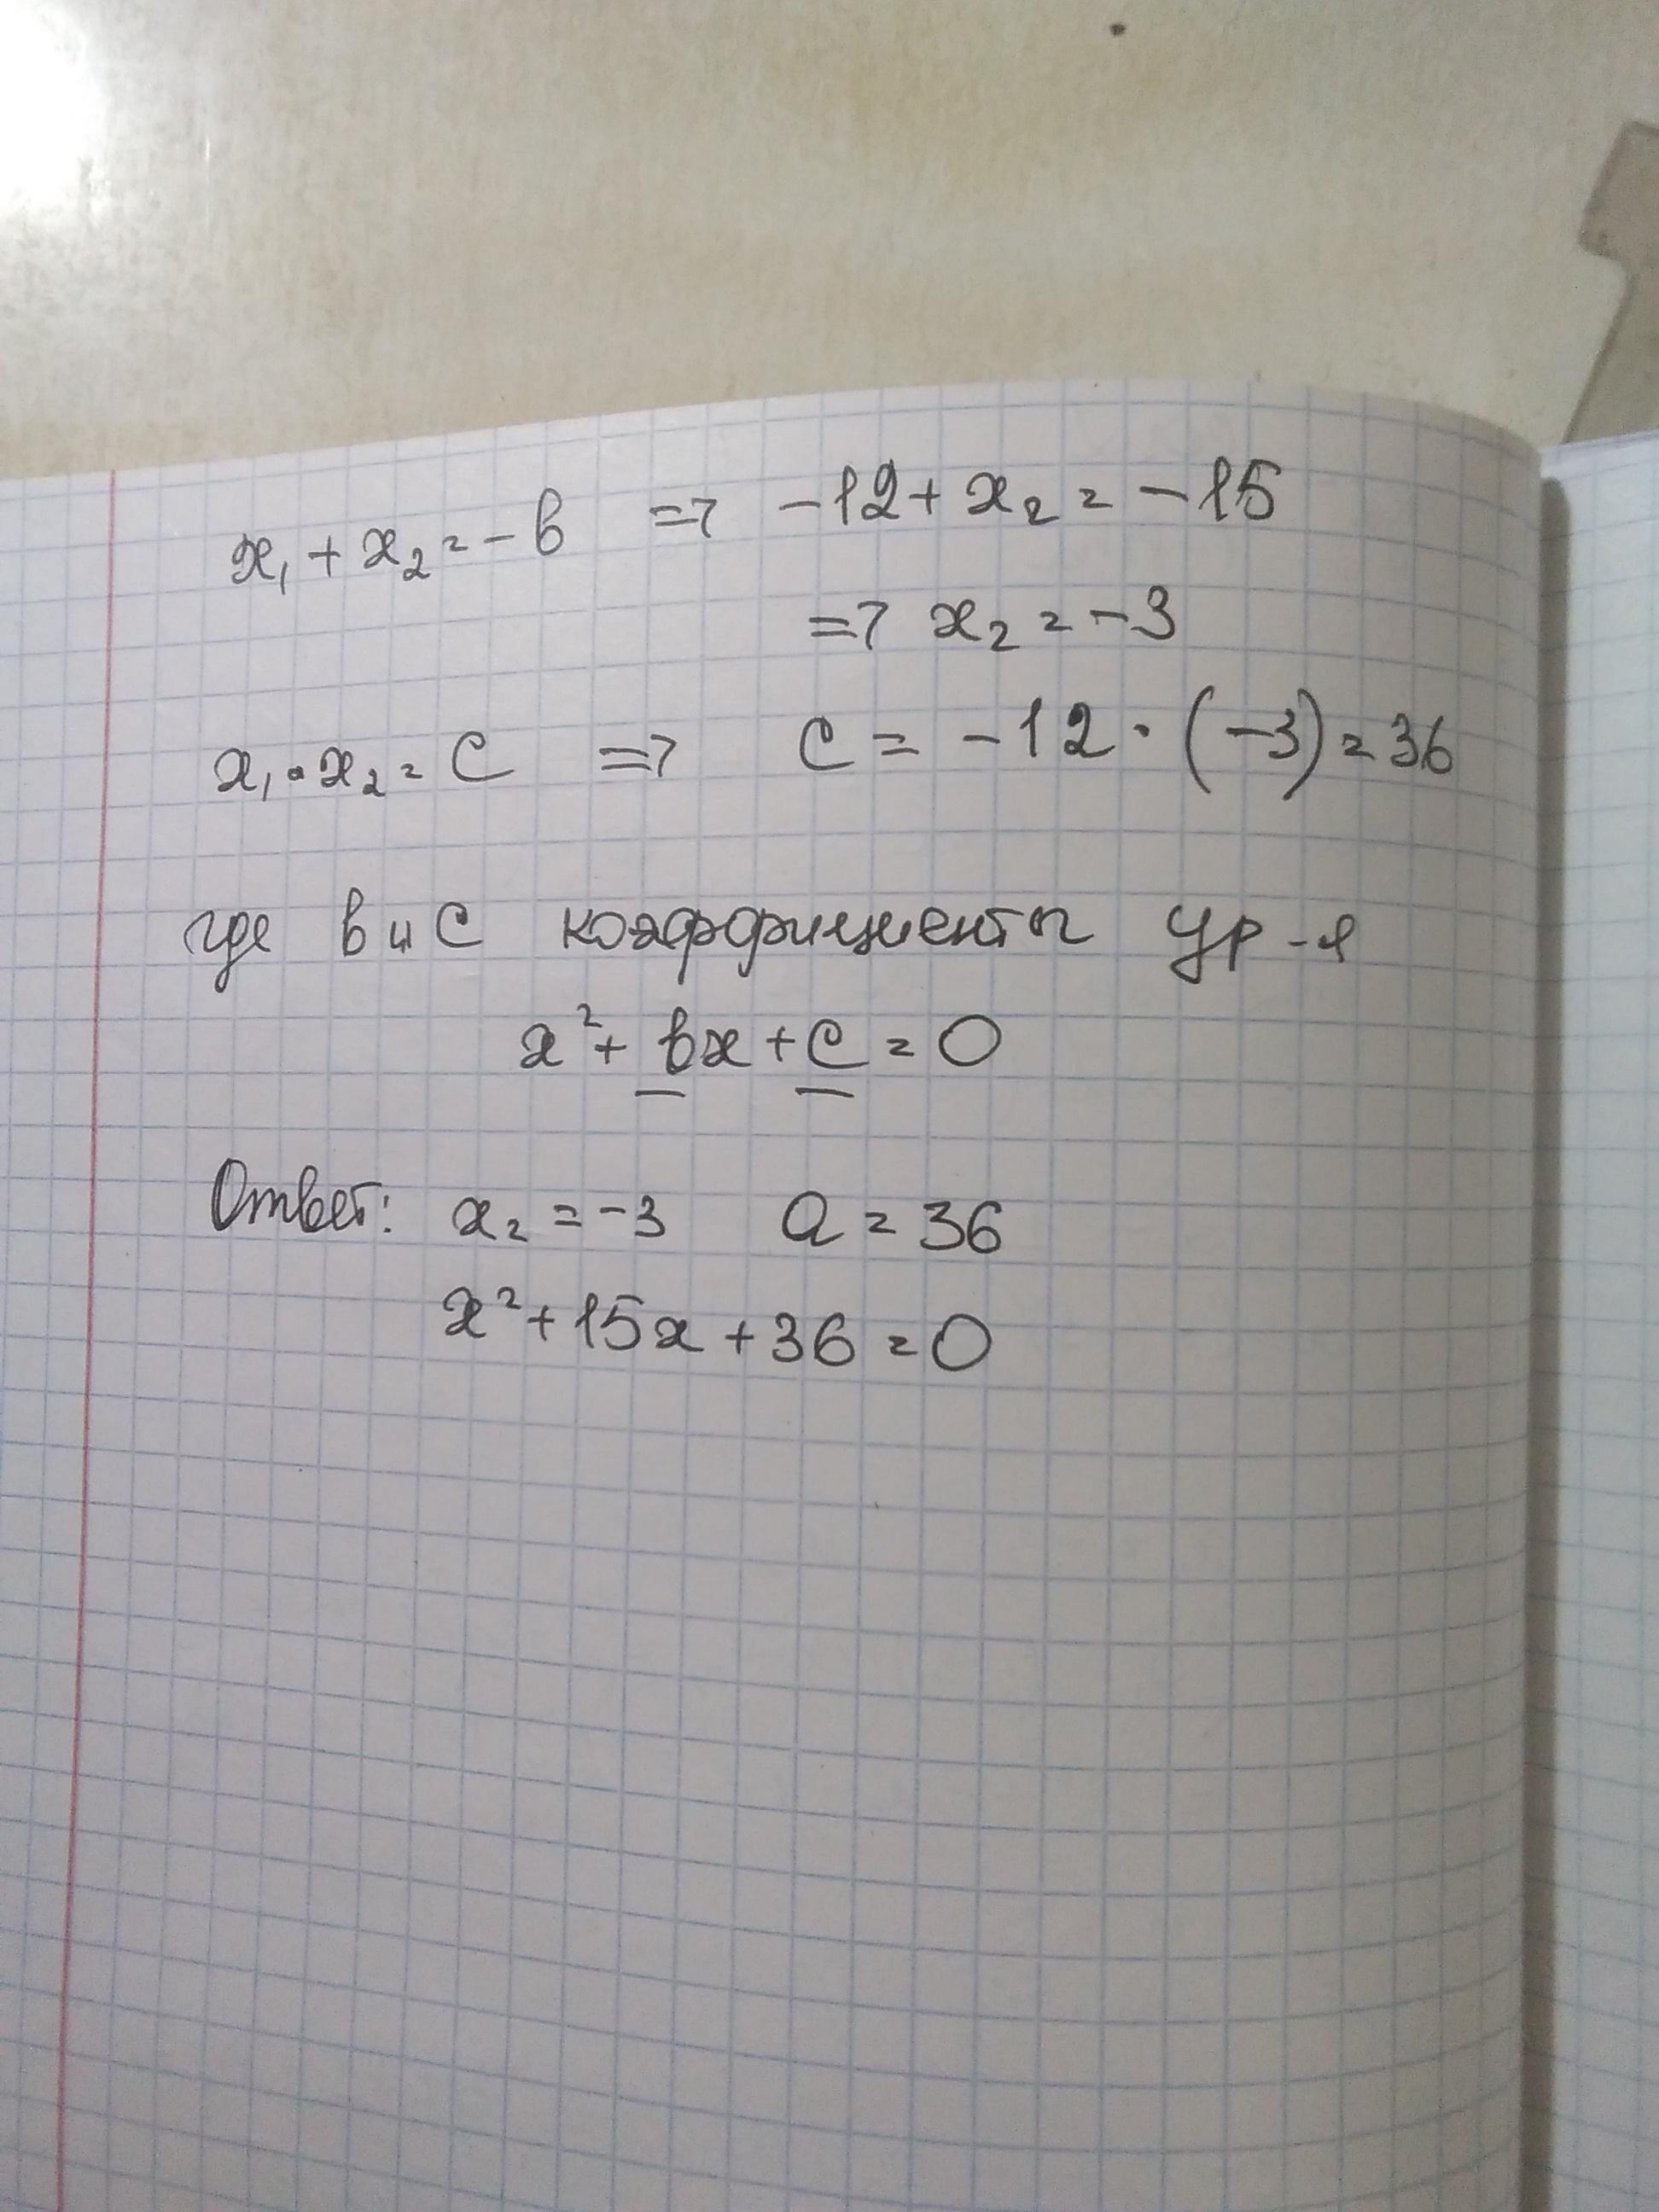 x₁ + x₂ = -в => -12 + x₂ = -15
=> x₂ = -3
x₁ • x₂ = C => C = -12 · (-3) = 36
где в и С коэффициенты ур-я
x² + вx + c = 0
Ответ: x₂ = -3 a = 36
x² + 15x + 36 = 0